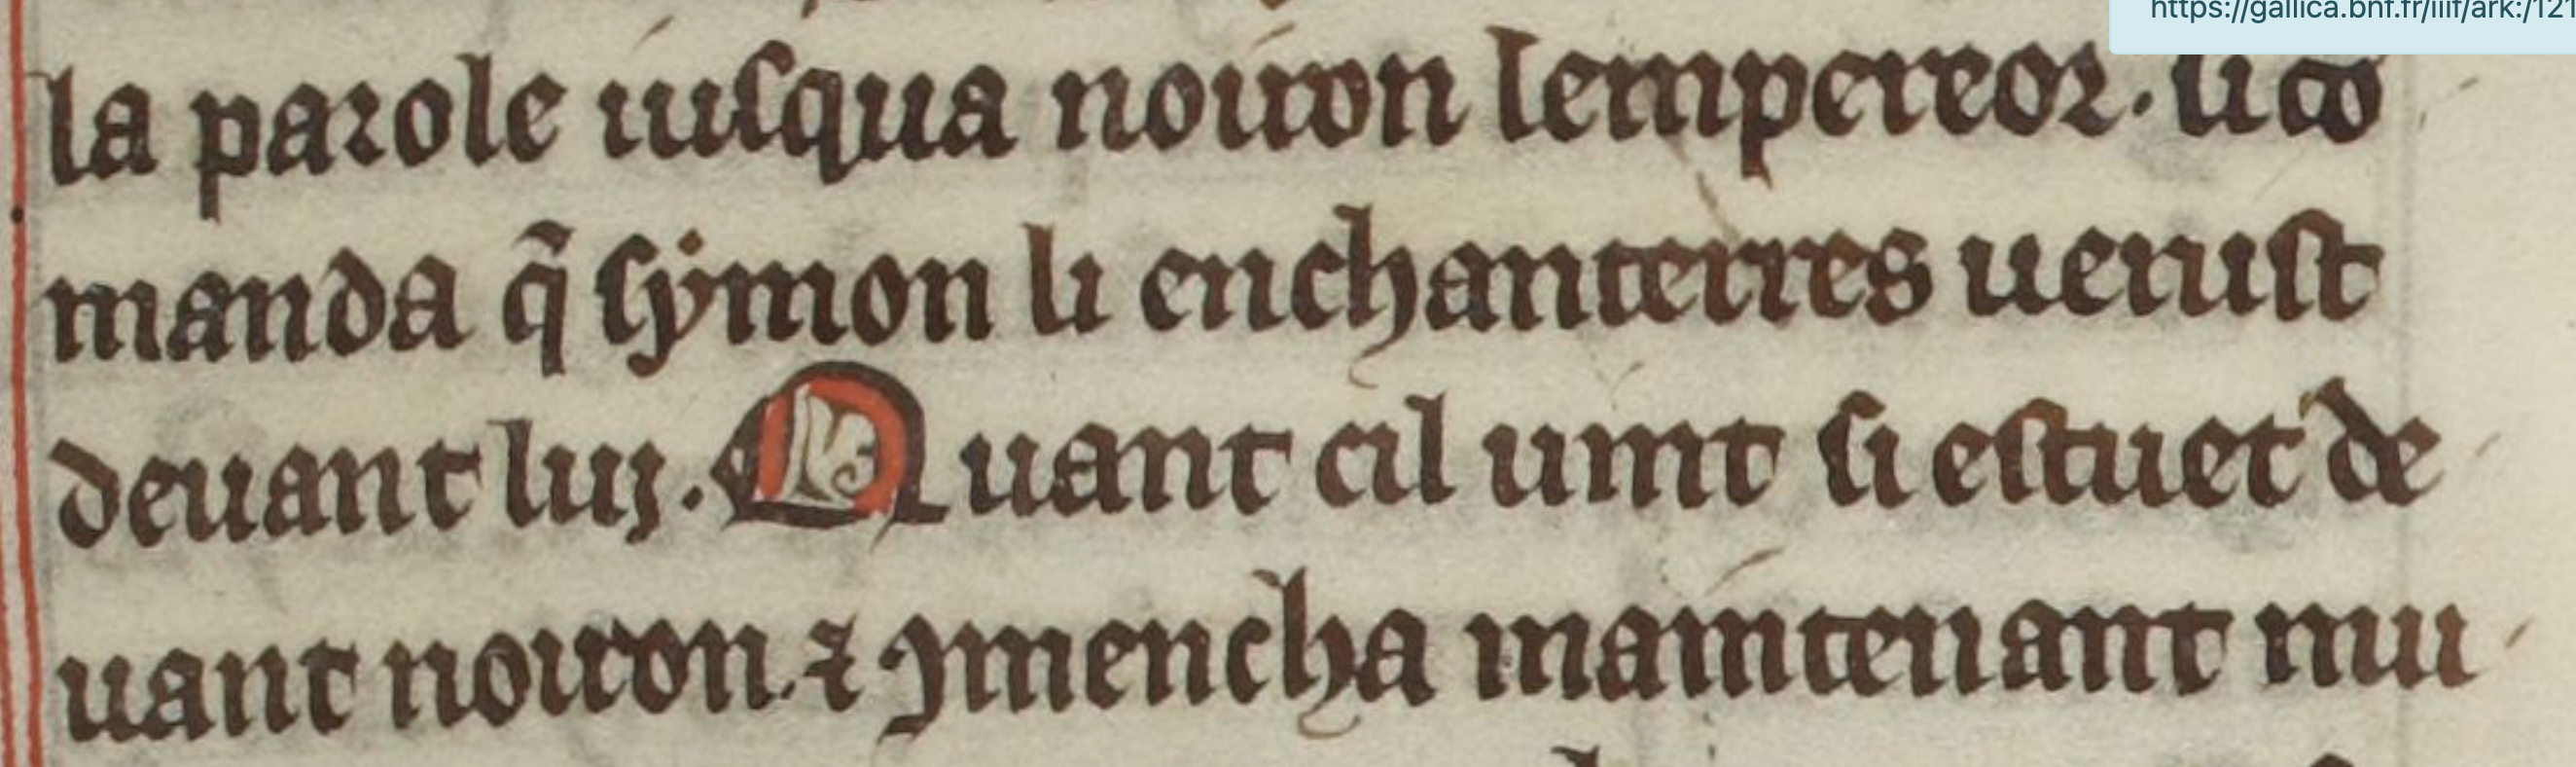 https://gallica.bnf.fr/iiif/ark:/121
la parole iusqua noiron lempereor. il co
manda q̃ symon li enchanterres uenist
deuant luj. Quant cil uint si estuet de
uant noiron. ⁊ ꝯmencha maintenant mu